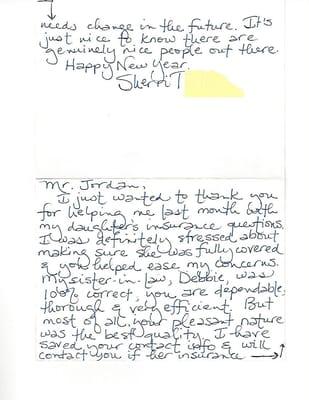 Mr. Jordan,
I just wanted to thank you
for helping me last month with
my daughter's insurance questions.
I was definitely stressed about
making sure she was fully covered
& you helped ease my concerns.
My sister-in-law, Debbie, was
100% correct, you are dependable,
thorough & very efficient. But
most of all, your pleasant nature
was the best quality. I have
saved your contact info & will
contact you if her insurance →
needs change in the future. It's
just nice to know there are
genuinely nice people out there.
Happy New Year.
Sherri T